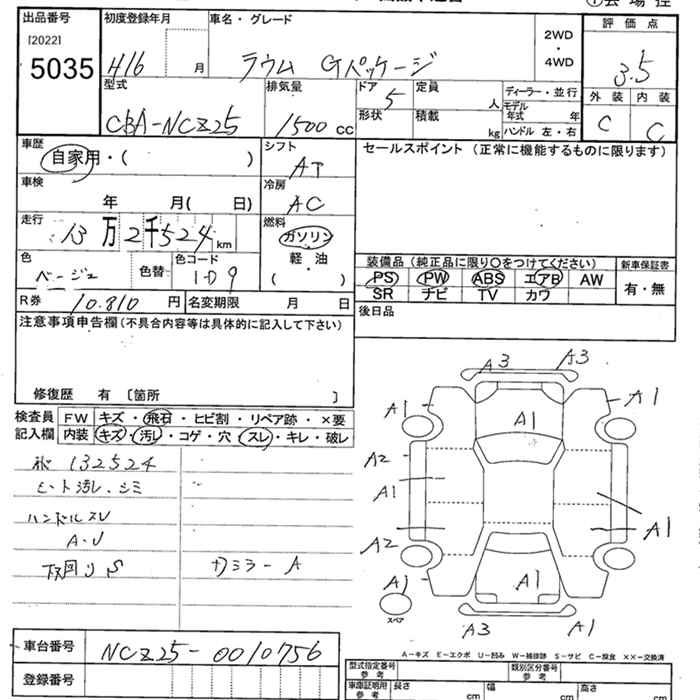 出品番号 初度登録年月 車名・グレード 評価点
[2022]
5035 H16 月 ラウム Gパッケージ 2WD・4WD 3.5
型式 排気量 ドア 定員 ディーラー・並行 外装 内装
CBA-NCZ25 1500 CC 5 人 モデル年式 年 C C
形状 積載 kg ハンドル 左・右
車歴 シフト セールスポイント (正常に機能するものに限ります)
自家用・( ) AT
車検 冷房
年 月( 日) AC
走行 燃料
13万2千524km ガソリン
軽・油
( )
色 色替 色コード 装備品 (純正品に限り○をつけてください) 新車保証書
ベージュ 1D9 PS PW ABS エアB AW 有・無
SR ナビ TV カワ
R券 10.810 円 名変期限 月 日 後日品
注意事項申告欄(不具合内容等は具体的に記入して下さい)
修復歴 有 〔箇所 〕
検査員 FW キズ・飛石・ヒビ割・リペア跡・×要
記入欄 内装 キズ・汚レ・コゲ・穴・スレ・キレ・破レ
132524
シート汚レ.シミ
ハンドルスレ
A・U
下回りS カワミラーA
A3 A3
A1 A1 A1
A2
A1
A1
A2
A1 A1
スペア
A3 A1
A-キズ E-エクボ U-凹み W-補修跡 S-サビ C-腐食 ××-交換済
車台番号 NCZ25-0010756
登録番号
型式指定番号 参考 類別区分番号 参考
車庫証明用 参考 長さ cm 幅 cm 高さ cm